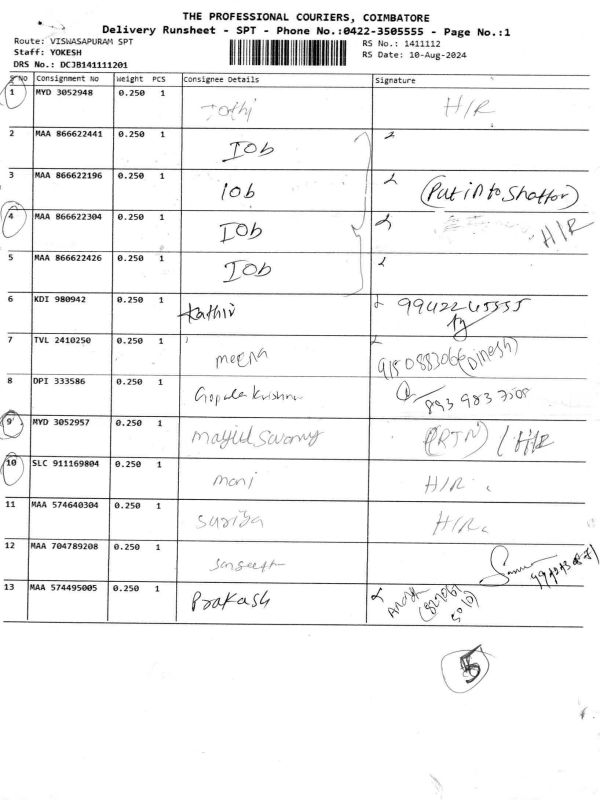 THE PROFESSIONAL COURIERS, COIMBATORE
Delivery Runsheet - SPT - Phone No.:0422-3505555 - Page No.:1
Route: VISWASAPURAM SPT RS No.: 1411112
Staff: YOKESH RS Date: 10-Aug-2024
DRS No.: DCJB141111201
S No Consignment No Weight PCS Consignee Details Signature
1 MYD 3052948 0.250 1 Jothi H/R
2 MAA 866622441 0.250 1 IOb
3 MAA 866622196 0.250 1 IOb (Put in to Shattor)
4 MAA 866622304 0.250 1 IOb H/R
5 MAA 866622426 0.250 1 IOb
6 KDI 980942 0.250 1 Kathir
7 TVL 2410250 0.250 1 meena 9150883066 (Dinesh)
8 DPI 333586 0.250 1 Gopala Krishna
9 MYD 3052957 0.250 1 (RTN) / H/R
10 SLC 911169804 0.250 1 mani H/R.
11 MAA 574640304 0.250 1 Suriya H/R.
12 MAA 704789208 0.250 1 Sangeeth
13 MAA 574495005 0.250 1 Prakash
5